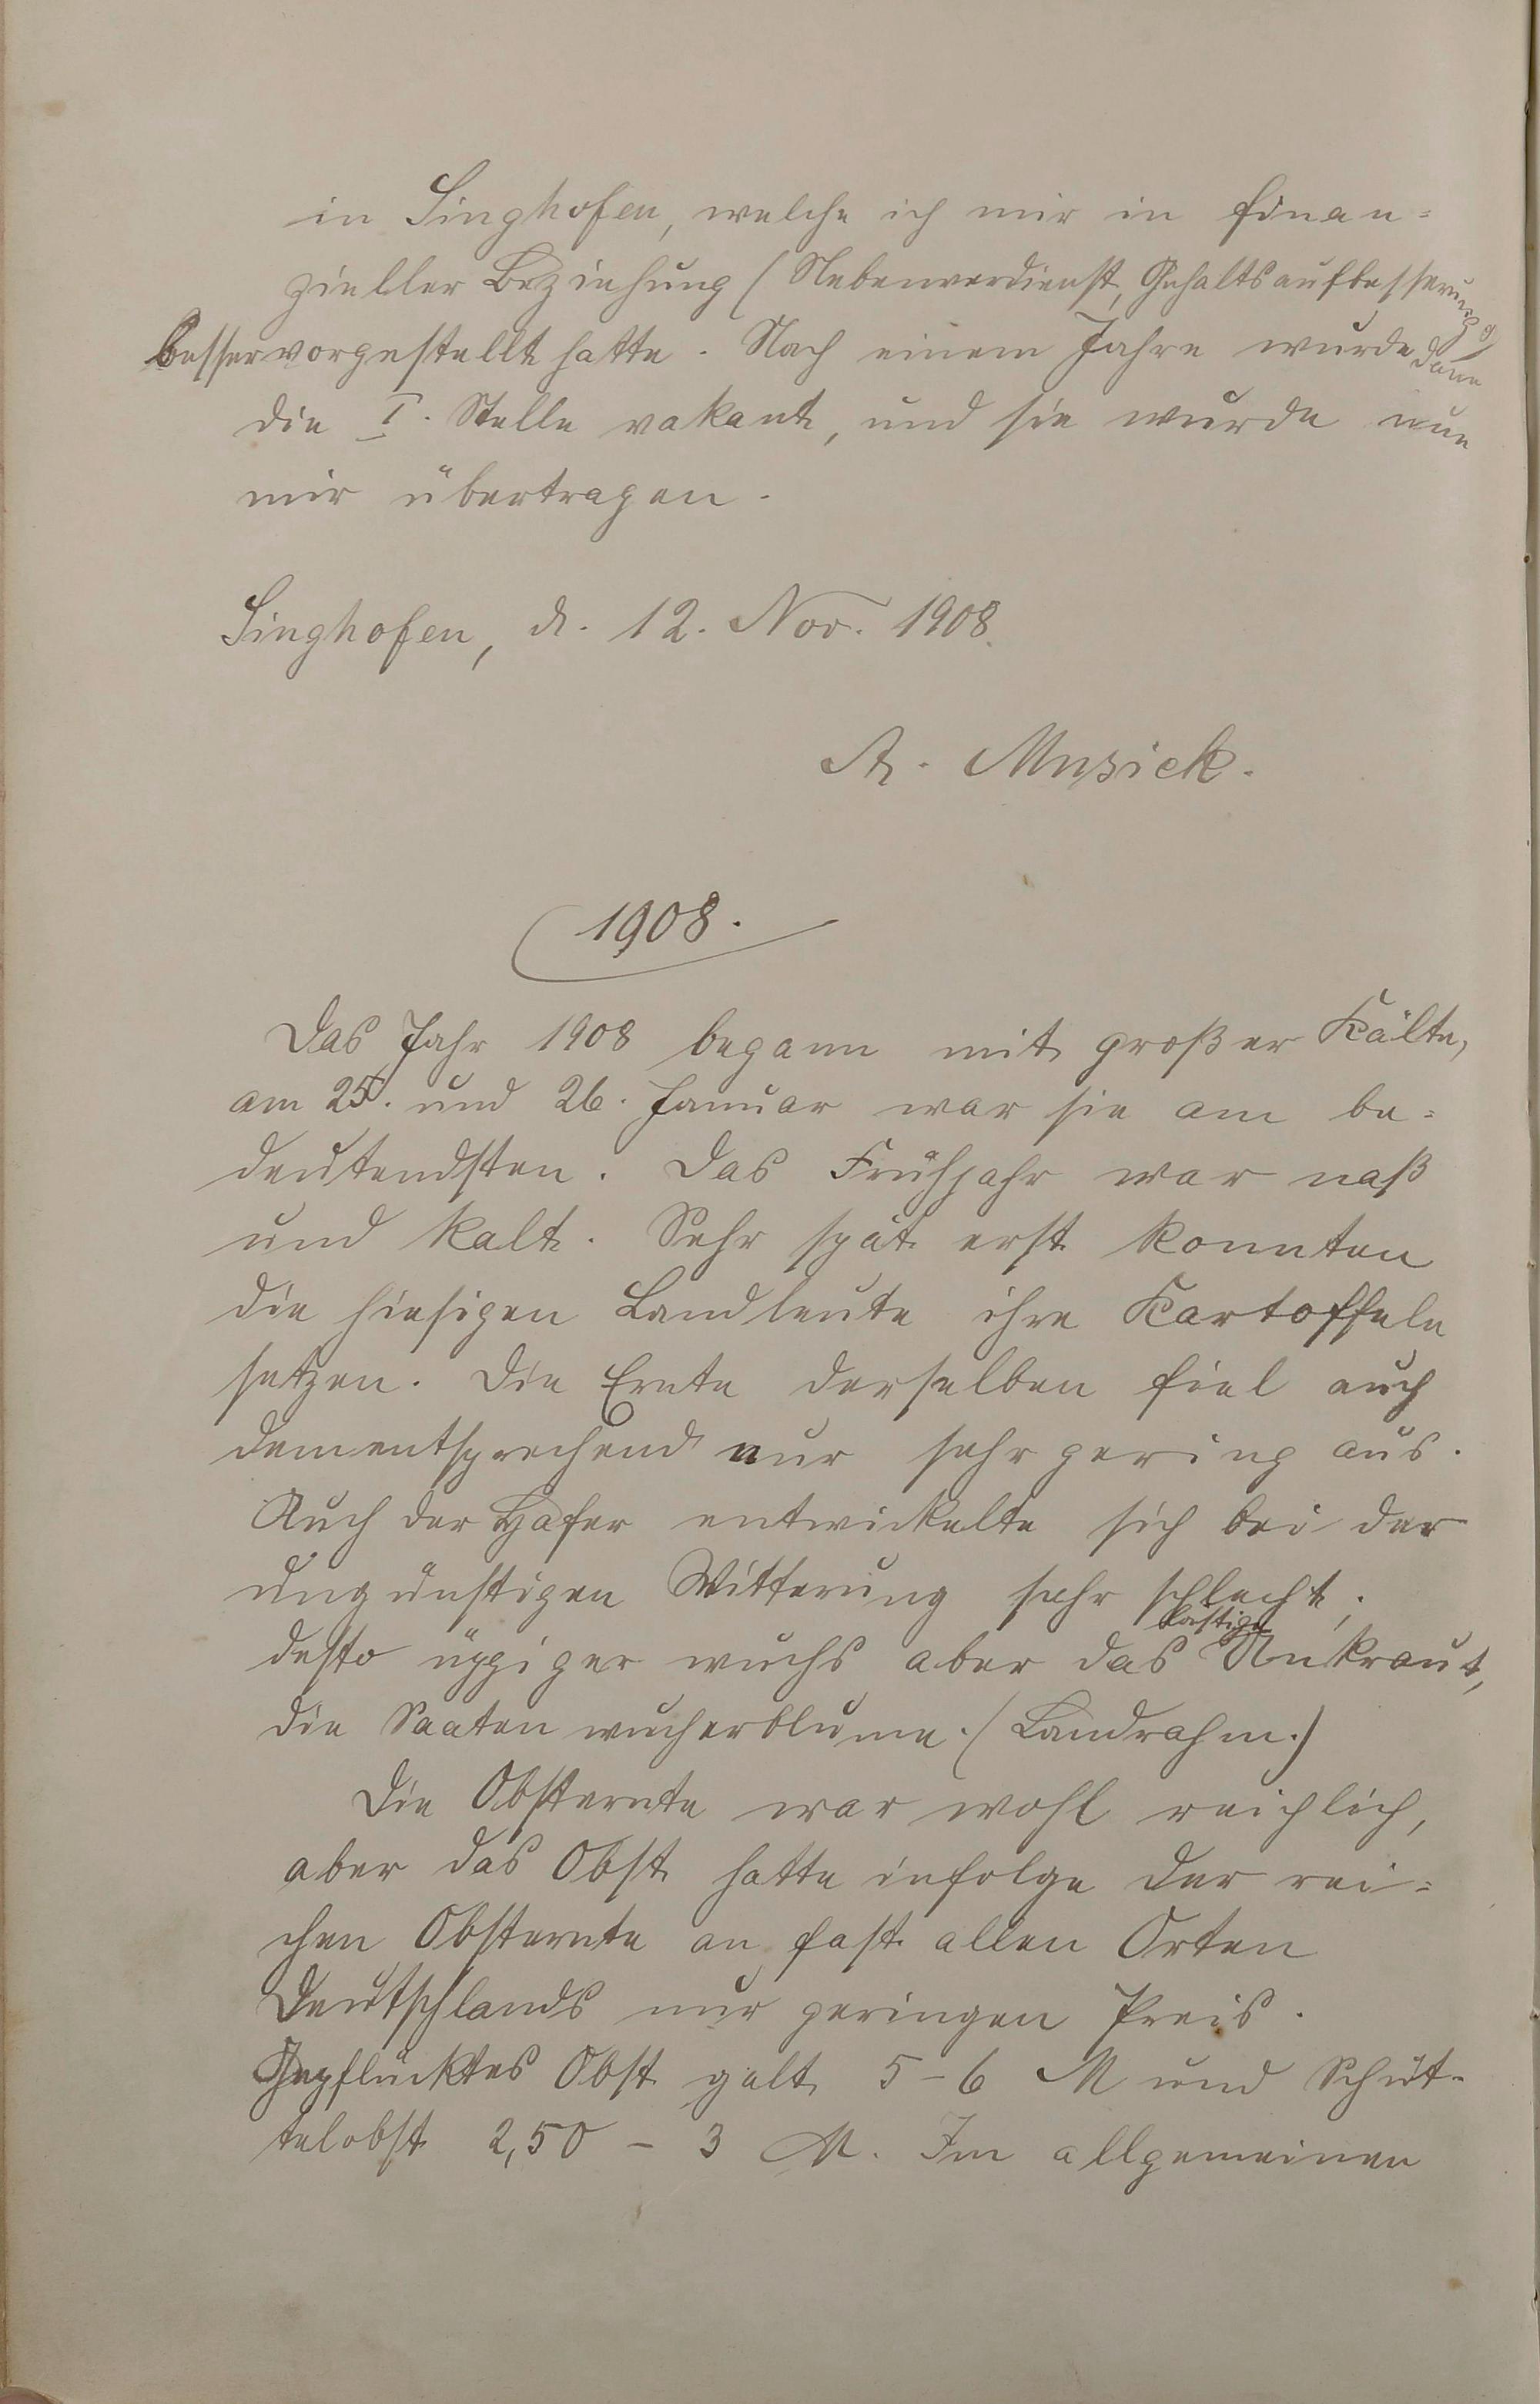 in Singhofen, welche ich mir in finan-
zieller Beziehung (Nebenverdienst, Gehaltsaufbesserung)
besser vorgestellt hatte. Nach einem Jahre wurde dann
die I. Stelle vakant, und sie wurde nun
mir übertragen.
Singhofen, d. 12. Nov. 1908.
A. Musick.
1908.
Das Jahr 1908 begann mit großer Kälte,
am 25. und 26. Januar war sie am be-
deutendsten. Das Frühjahr war naß
und kalt. Sehr spät erst konnten
die hiesigen Landleute ihre Kartoffeln
setzen. Die Ernte derselben fiel auch
dementsprechend nur sehr gering aus.
Auch der Hafer entwickelte sich bei der
ungünstigen Witterung sehr schlecht;
desto üppiger wuchs aber das lästige Unkraut,
die Saatenwucherblume. (Landrahm.)
Die Obsternte war wohl reichlich,
aber das Obst hatte infolge der rei-
chen Obsternte an fast allen Orten
Deutschlands nur geringen Preis.
Gepflücktes Obst galt 5-6 M und Schüt-
telobst 2,50 - 3 M. Im allgemeinen